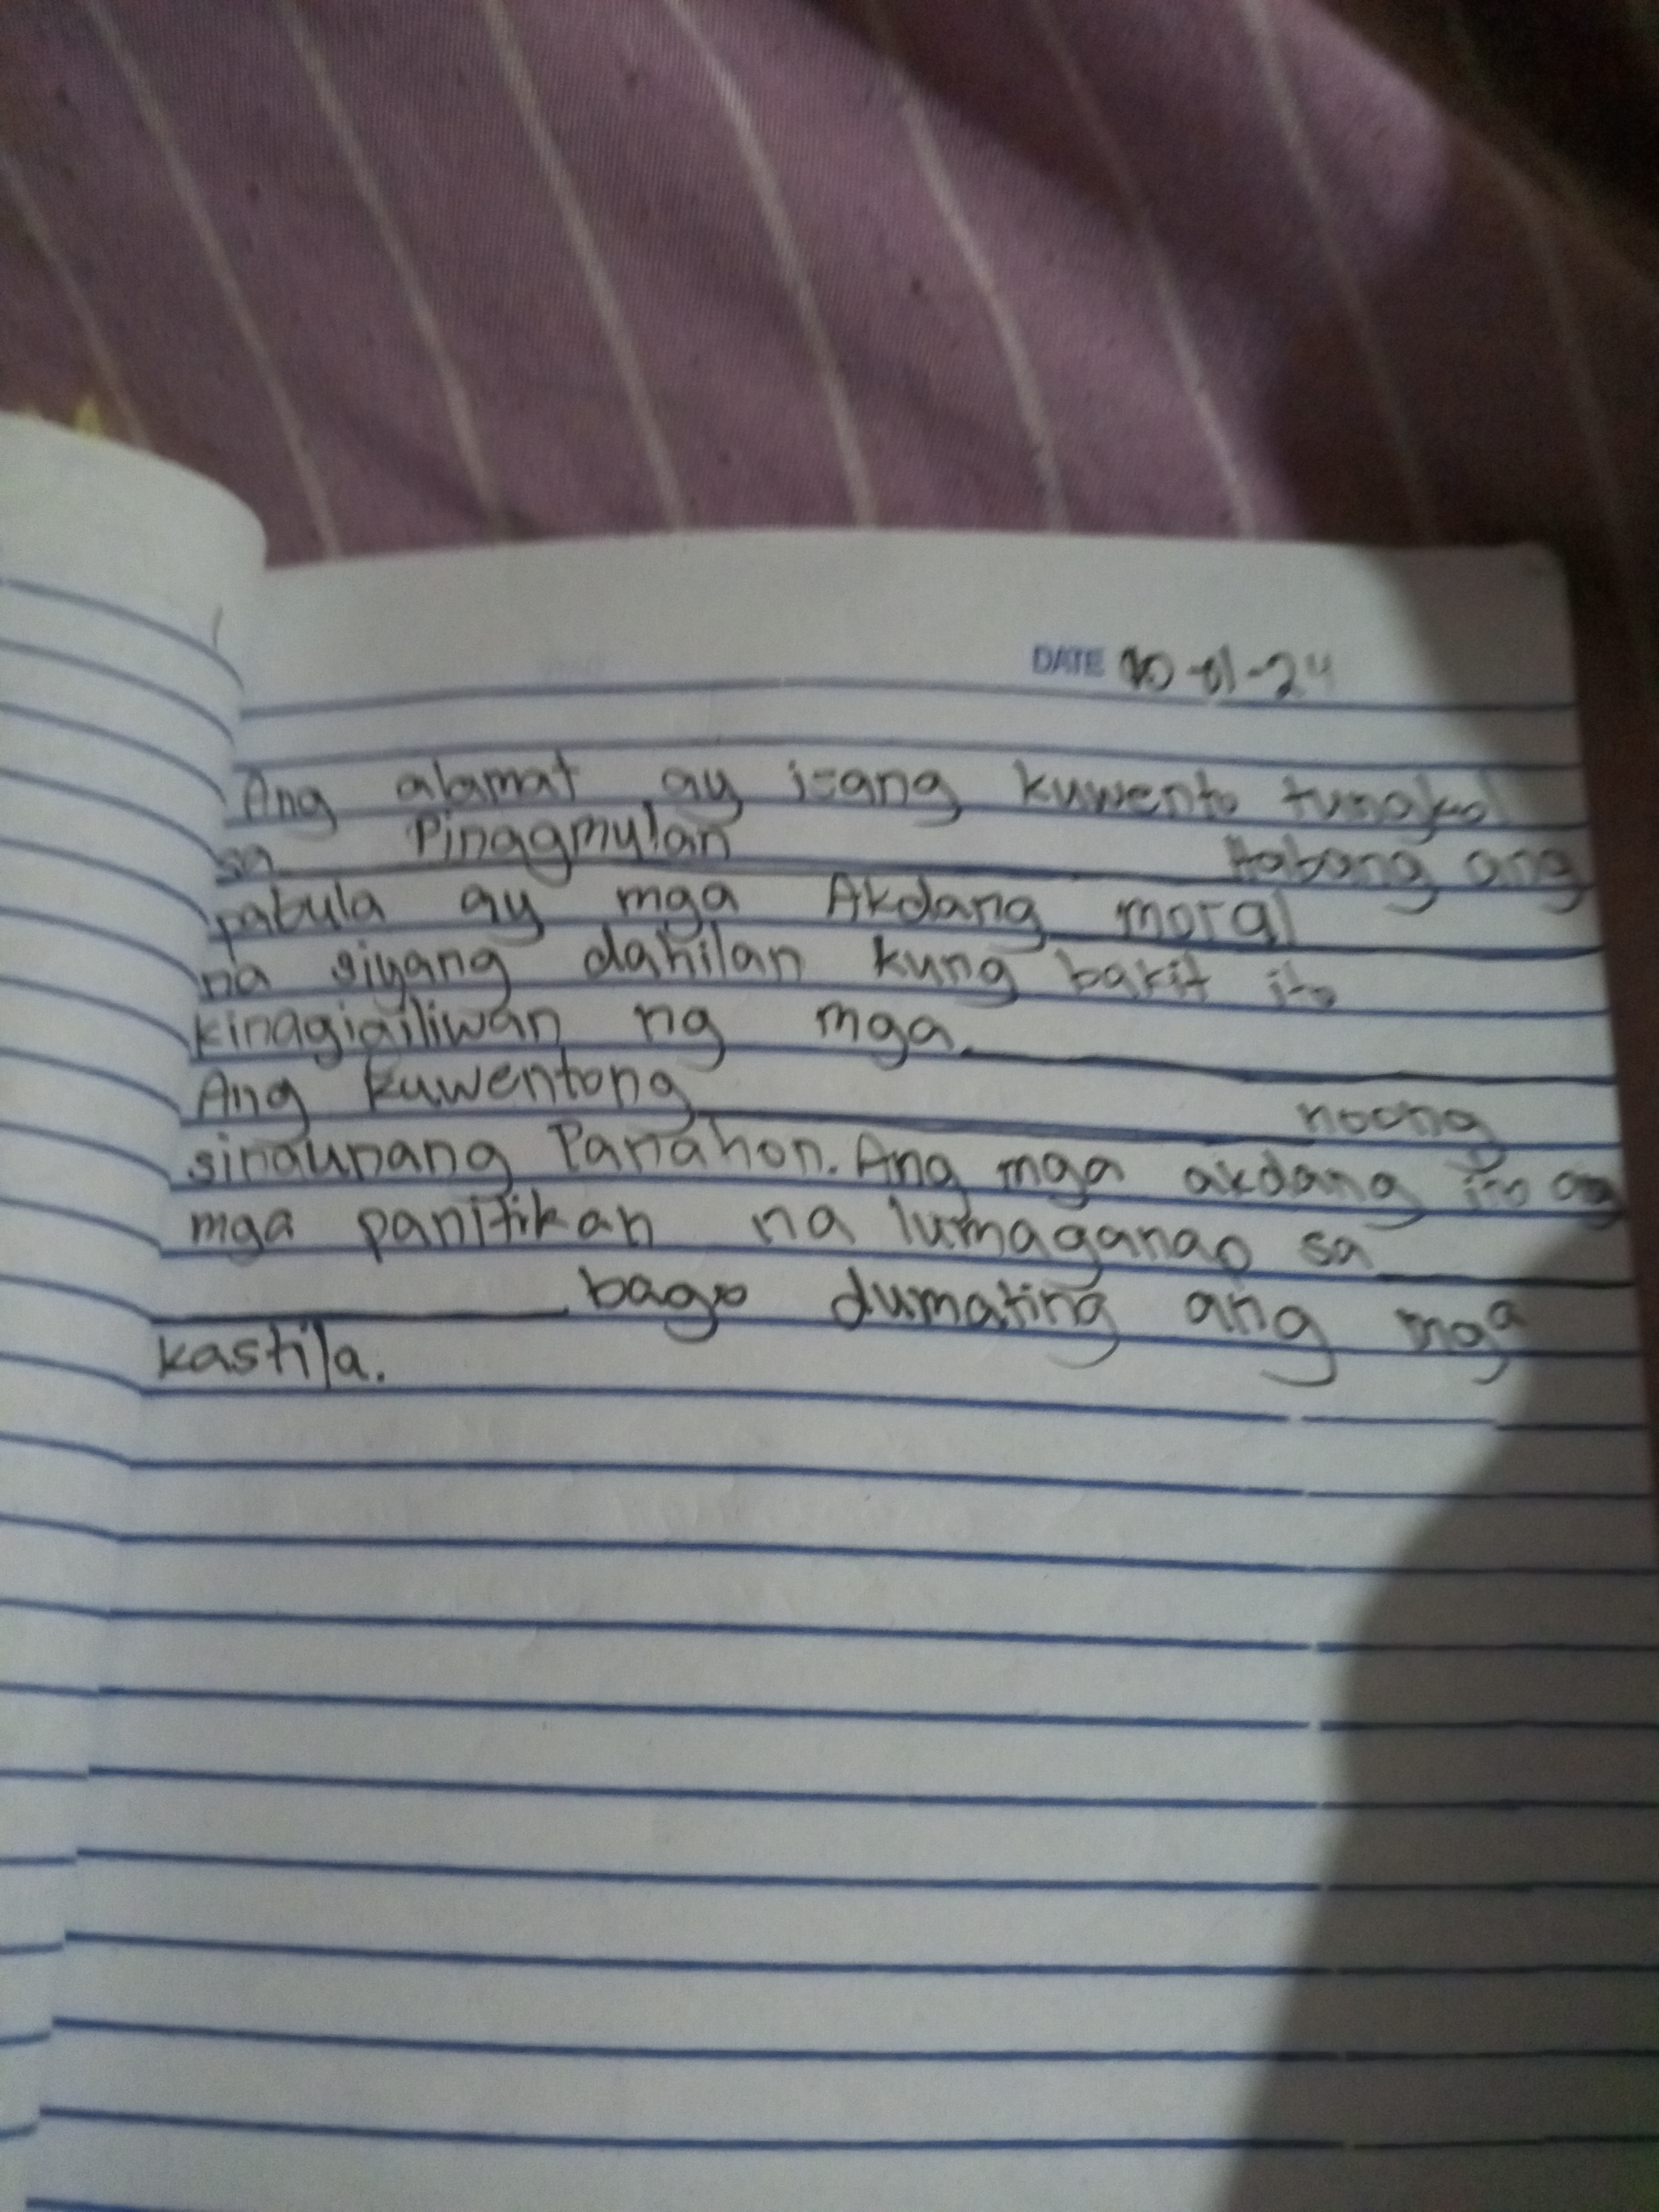 DATE 10-01-24
Ang alamat ay isang kuwento tungkol
sa Pinagmulan __________ Habang ang
pabula ay mga Akdang moral
na siyang dahilan kung bakit ito
kinagigiliwan ng mga __________
Ang kuwentong __________ noong
sinaunang Panahon. Ang mga akdang ito ay
mga panitikan na lumaganap sa ____
__________ bago dumating ang mga
kastila.